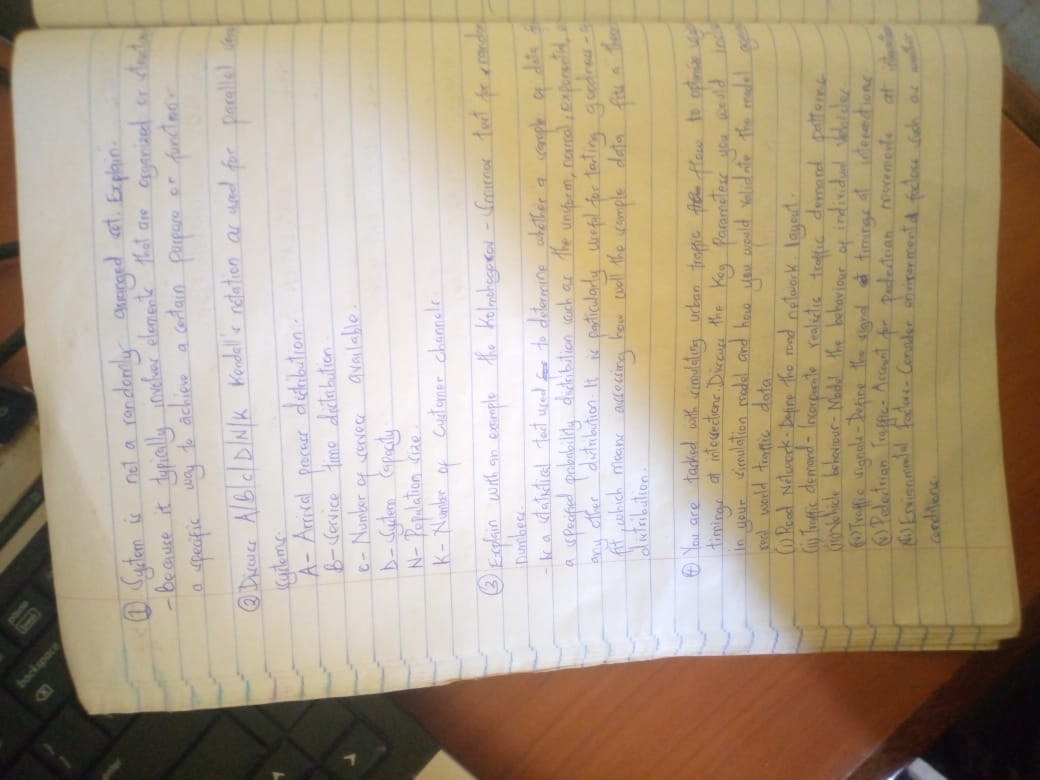 backspace
pause
① System is not a randomly arranged set. Explain.
- Because it typically involves elements that are organized or
a specific way to achieve a certain purpose or function.
② Discuss A/B/c/D/N/K Kendall's notation as used for parallel
systems.
A- Arrival process distribution.
B- Service time distribution
c- Number of servers available.
D- System Capacity
N- Population size.
K- Number of customer channels
③ Explain with an example the Kolmohogorov - Smirnov test for random
numbers.
- Is a statistical test used to determine whether a sample of data
a specified probability distribution such as the uniform, normal, exponential,
any other distribution. It is particularly useful for testing goodness-
fit, which means assessing how well the sample data fits a
distribution.
④ You are tasked with simulating urban traffic flow to optimize
timings at intersections. Discuss the key parameters you would
in your simulation model and how you would validate the model
real world traffic data
(i) Road Network - Define the road network layout.
(ii) Traffic demand - Incorporate realistic traffic demand patterns
(iii) Vehicle behaviour - Model the behaviour of individual vehicles.
(iv) Traffic signals - Define the signal timings at intersections.
(v) Pedestrian Traffic - Account for pedestrian movements at
(vi) Environmental factors - Consider environmental factors such as weather
conditions.